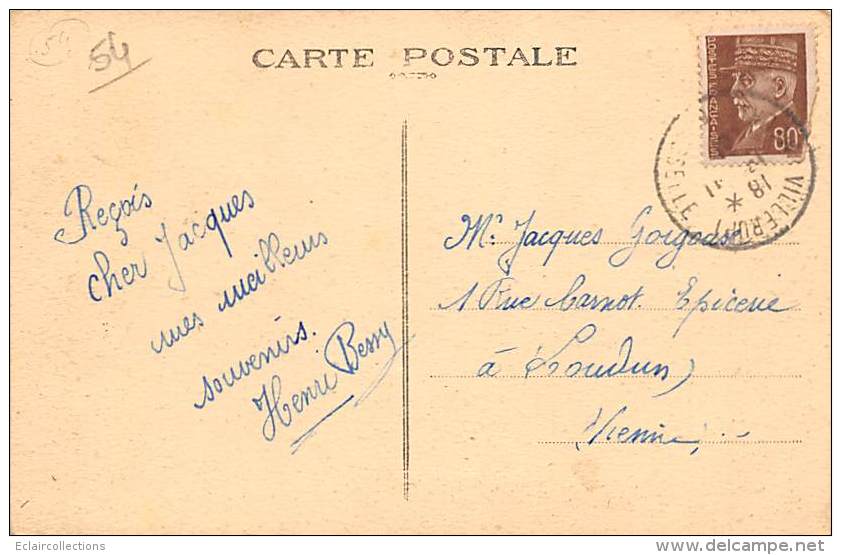 54
54
CARTE POSTALE
POSTES FRANÇAISES
80
VILLERUPT
18 *
Reçois
cher Jacques
mes meilleurs
souvenirs.
Henri Bessy
Mr. Jacques
1 Rue Carnot. Epicerie
à Loudun
Vienne
Eclaircollections
delcampe.net